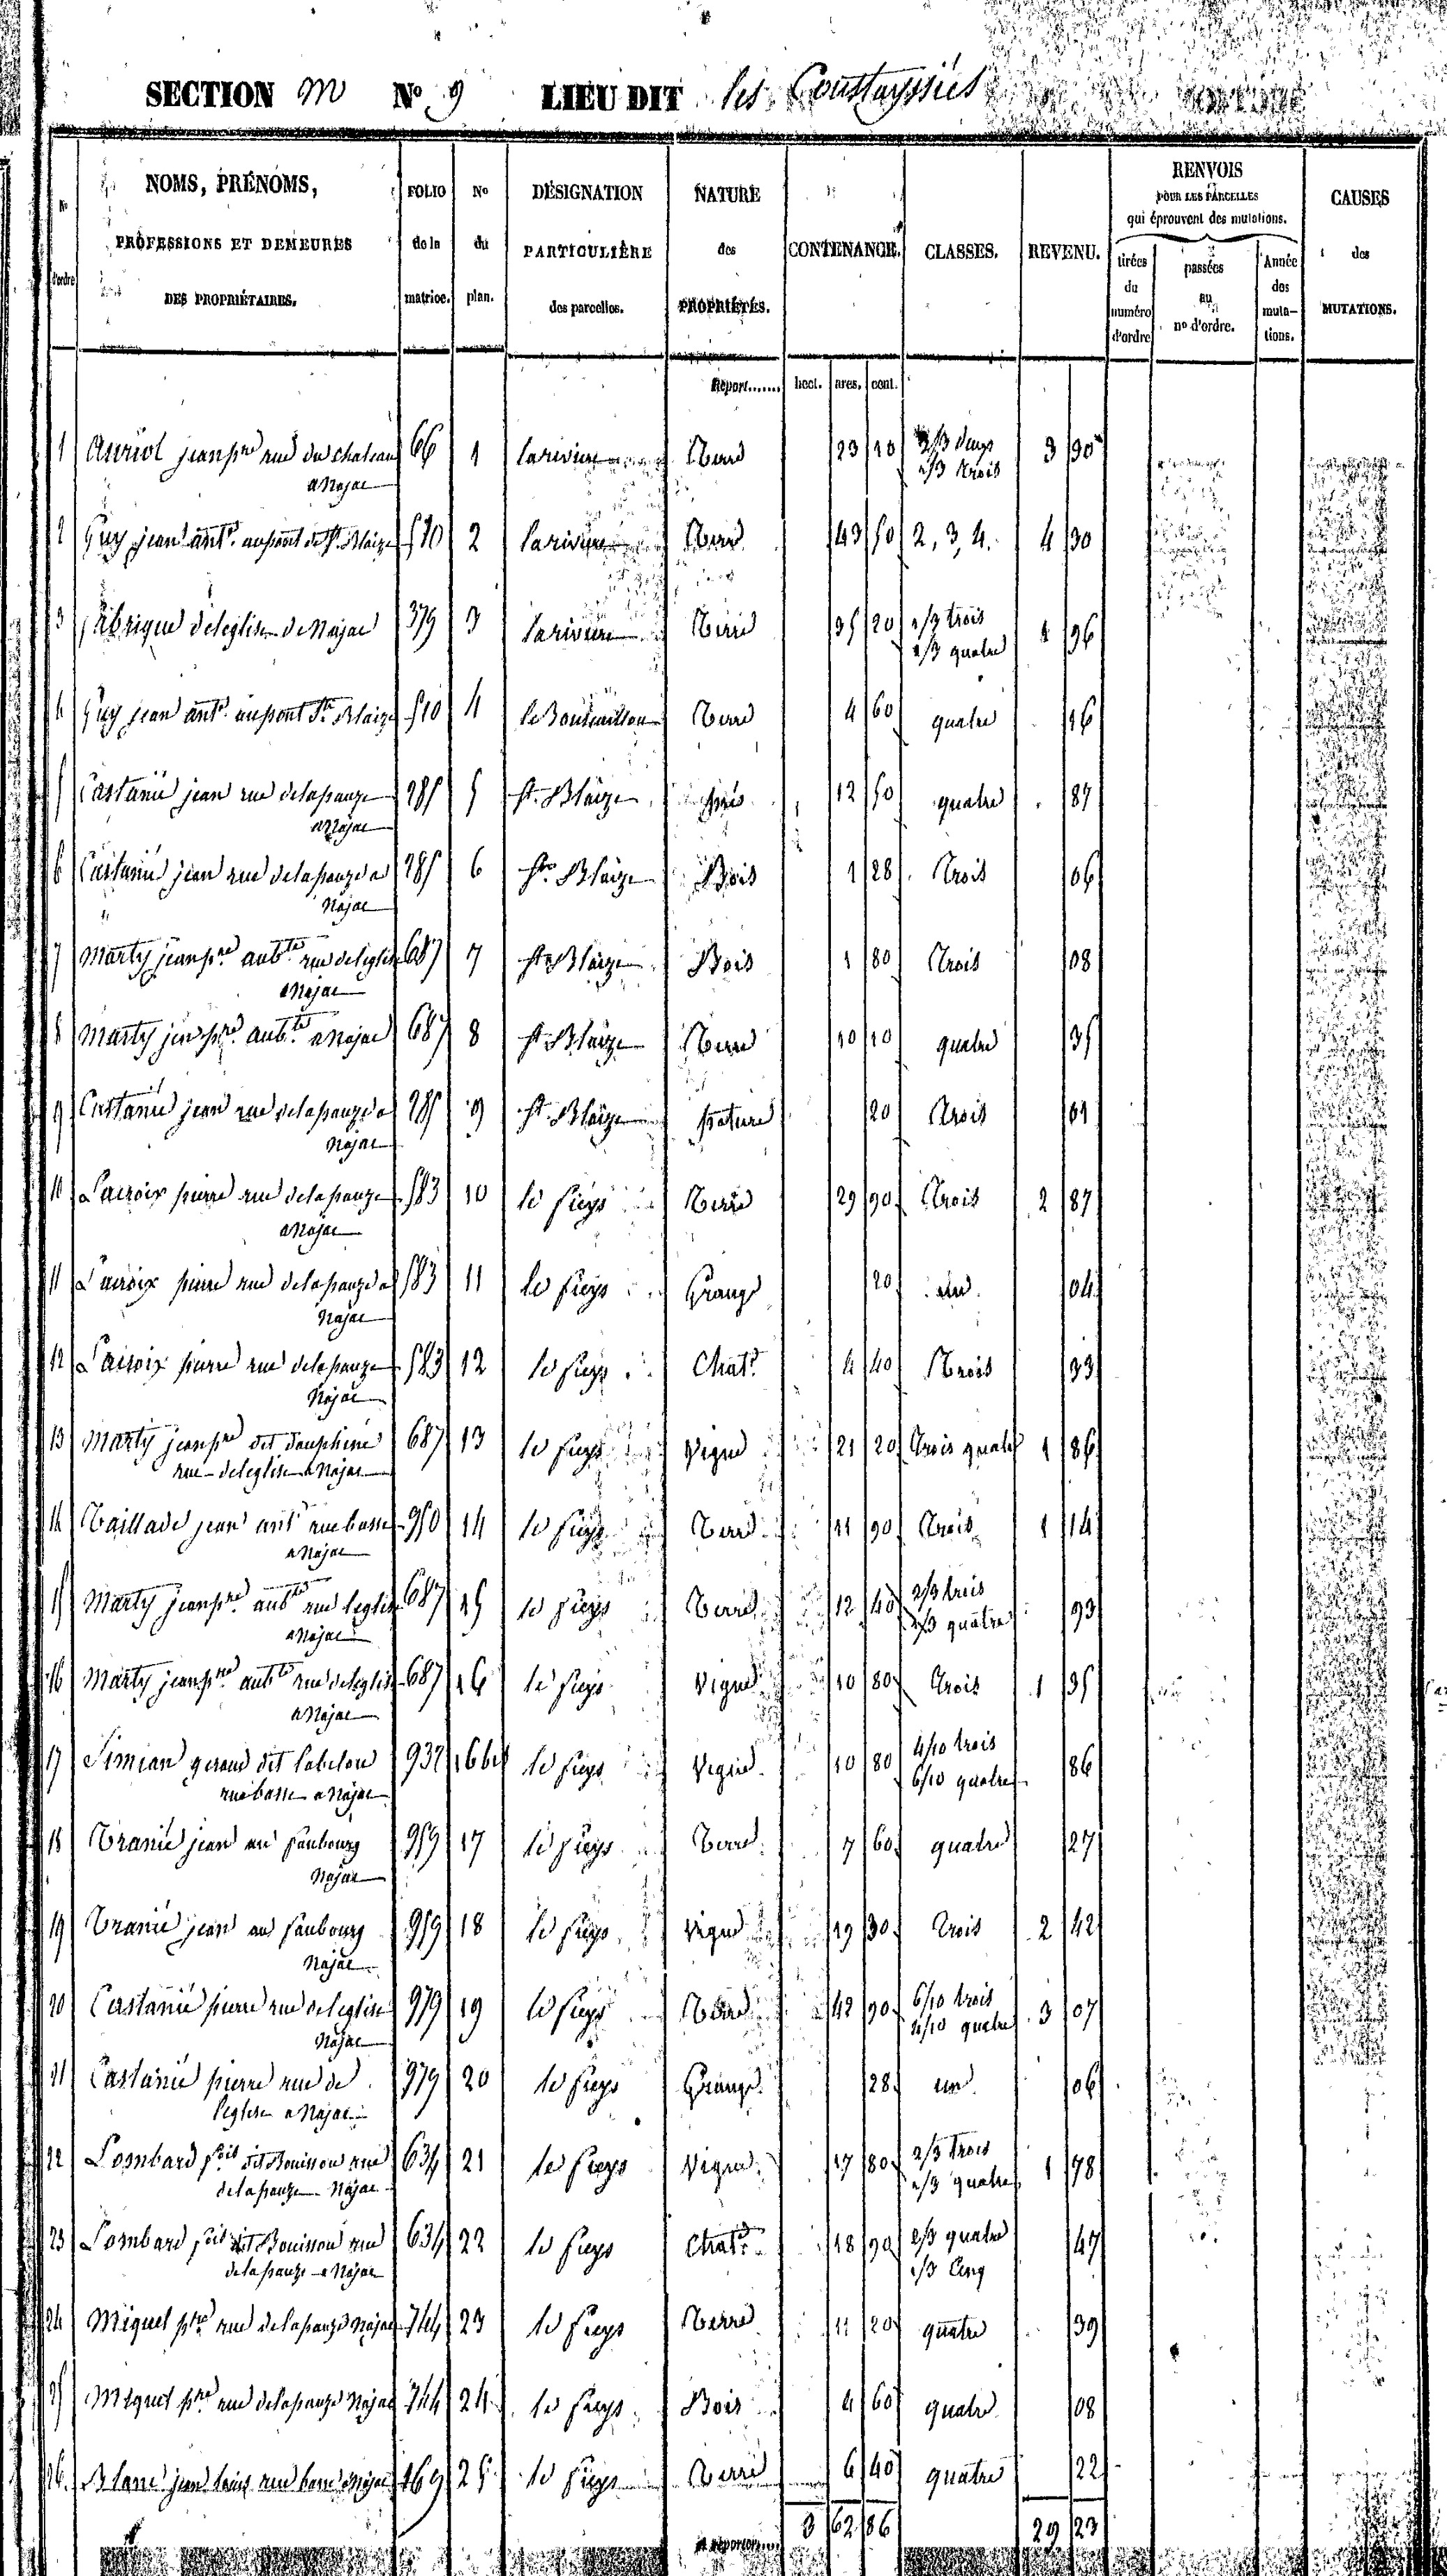 SECTION M No 9 LIEU DIT les Coustayssiés
No d'ordre
NOMS, PRÉNOMS, PROFESSIONS ET DEMEURES DES PROPRIÉTAIRES.
FOLIO de la matrice.
No du plan.
DÉSIGNATION PARTICULIÈRE des parcelles.
NATURE des PROPRIÉTÉS.
CONTENANCE.
CLASSES.
REVENU.
RENVOIS POUR LES PARCELLES qui éprouvent des mutations.
tirées du numéro d'ordre
passées au no d'ordre.
Année des muta- tions.
CAUSES des MUTATIONS.
Report....... hect. ares. cent.
1 Auriol jean pre rue du chateau 66 1 la riviere Terre 23 10 2/3 deux 3 30
a Najac 1/3 trois
2 Guy jean ante au pont de St Blaize 510 2 la riviere Terre 43 50 2, 3, 4. 4 30
3 fabrique de leglise de Najac 379 3 la riviere Terre 35 20 1/3 trois 1 96
2/3 quatre
4 Guy jean ante au pont St Blaize 510 4 le Terre 4 60 quatre 16
5 Castanié jean rue de la pauze 285 5 St Blaize prés 12 50 quatre 87
a Najac
6 Castanié jean rue de la pauze a 285 6 St Blaize Bois 1 28 Trois 06
Najac
7 Marty jean pre aubte rue de leglise 687 7 St Blaize Bois 1 80 Trois 08
a Najac
8 Marty jean pre aubte a Najac 687 8 St Blaize Terre 10 10 quatre 35
9 Castanié jean rue de la pauze a 285 9 St Blaize pature 20 Trois 01
Najac
10 Lacroix pierre rue de la pauze 583 10 le fieys Terre 29 90 Trois 2 87
a Najac
11 Lacroix pierre rue de la pauze a 583 11 le fieys Grange 20 un 04
Najac
12 Lacroix pierre rue de la pauze 583 12 le fieys Chatre 4 40 Trois 33
Najac
13 Marty jean pre dit dauphiné 687 13 le fieys Vigne 21 20 Trois quatre 1 86
rue de leglise a Najac
14 Taillade jean ant rue basse 950 14 le fieys Terre 11 90 Trois 1 14
a Najac
15 Marty jean pre aubte rue leglise 687 15 le fieys Terre 12 40 2/3 trois 93
a Najac 1/3 quatre
16 Marty jean pre aubte rue de leglise 687 16 le fieys Vigne 10 80 Trois 1 35
a Najac
17 Simian geraud dit 937 16 bis le fieys Vigne 10 80 4/10 trois 86
rue basse a Najac 6/10 quatre
18 Tranié jean au faubourg 959 17 le fieys Terre 7 60 quatre 27
Najac
19 Tranié jean au faubourg 959 18 le fieys Vigne 19 30 Trois 2 42
Najac
20 Castanié pierre rue de leglise 979 19 le fieys Terre 42 90 6/10 trois 3 07
Najac 4/10 quatre
21 Castanié pierre rue de 979 20 le fieys Grange 28 un 06
leglise a Najac
22 Lombard fois dit Bouisson rue 634 21 le fieys Vigne 17 80 2/3 Trois 1 78
de la pauze Najac 1/3 quatre
23 Lombard fois dit Bouisson rue 634 22 le fieys Chatre 18 90 2/3 quatre 47
de la pauze a Najac 1/3 Cinq
24 Miquel pre rue de la pauze Najac 744 23 le fieys Terre 11 20 quatre 39
25 Miquel pre rue de la pauze Najac 744 24 le fieys Bois 4 60 quatre 08
26 Blanc jean louis rue basse Najac 169 25 le fieys Terre 6 40 quatre 22
A reporter...... 3 62 86 29 23